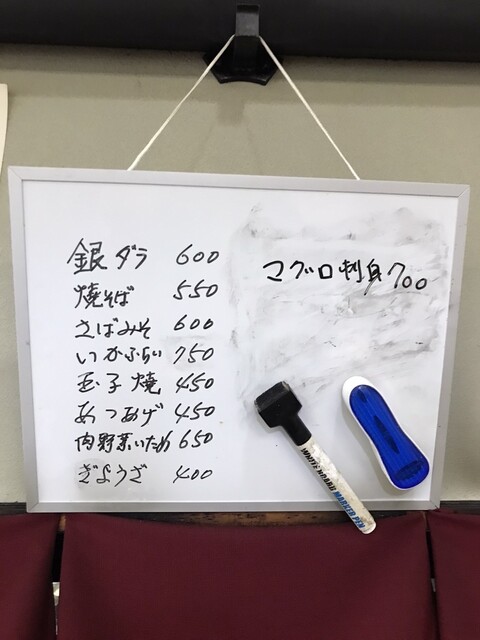 銀ダラ 600
焼そば 550
さばみそ 600
いかふらい 750
玉子焼 450
あつあげ 450
肉野菜いため 650
ぎょうざ 400
マグロ刺身 700
WHITE BOARD MARKER PEN